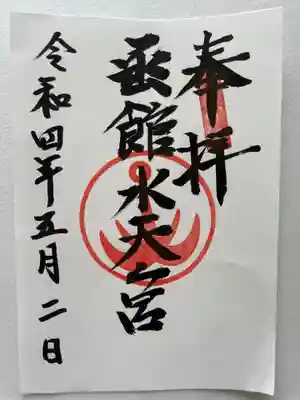 奉拝
函館水天宮
令和四年五月二日